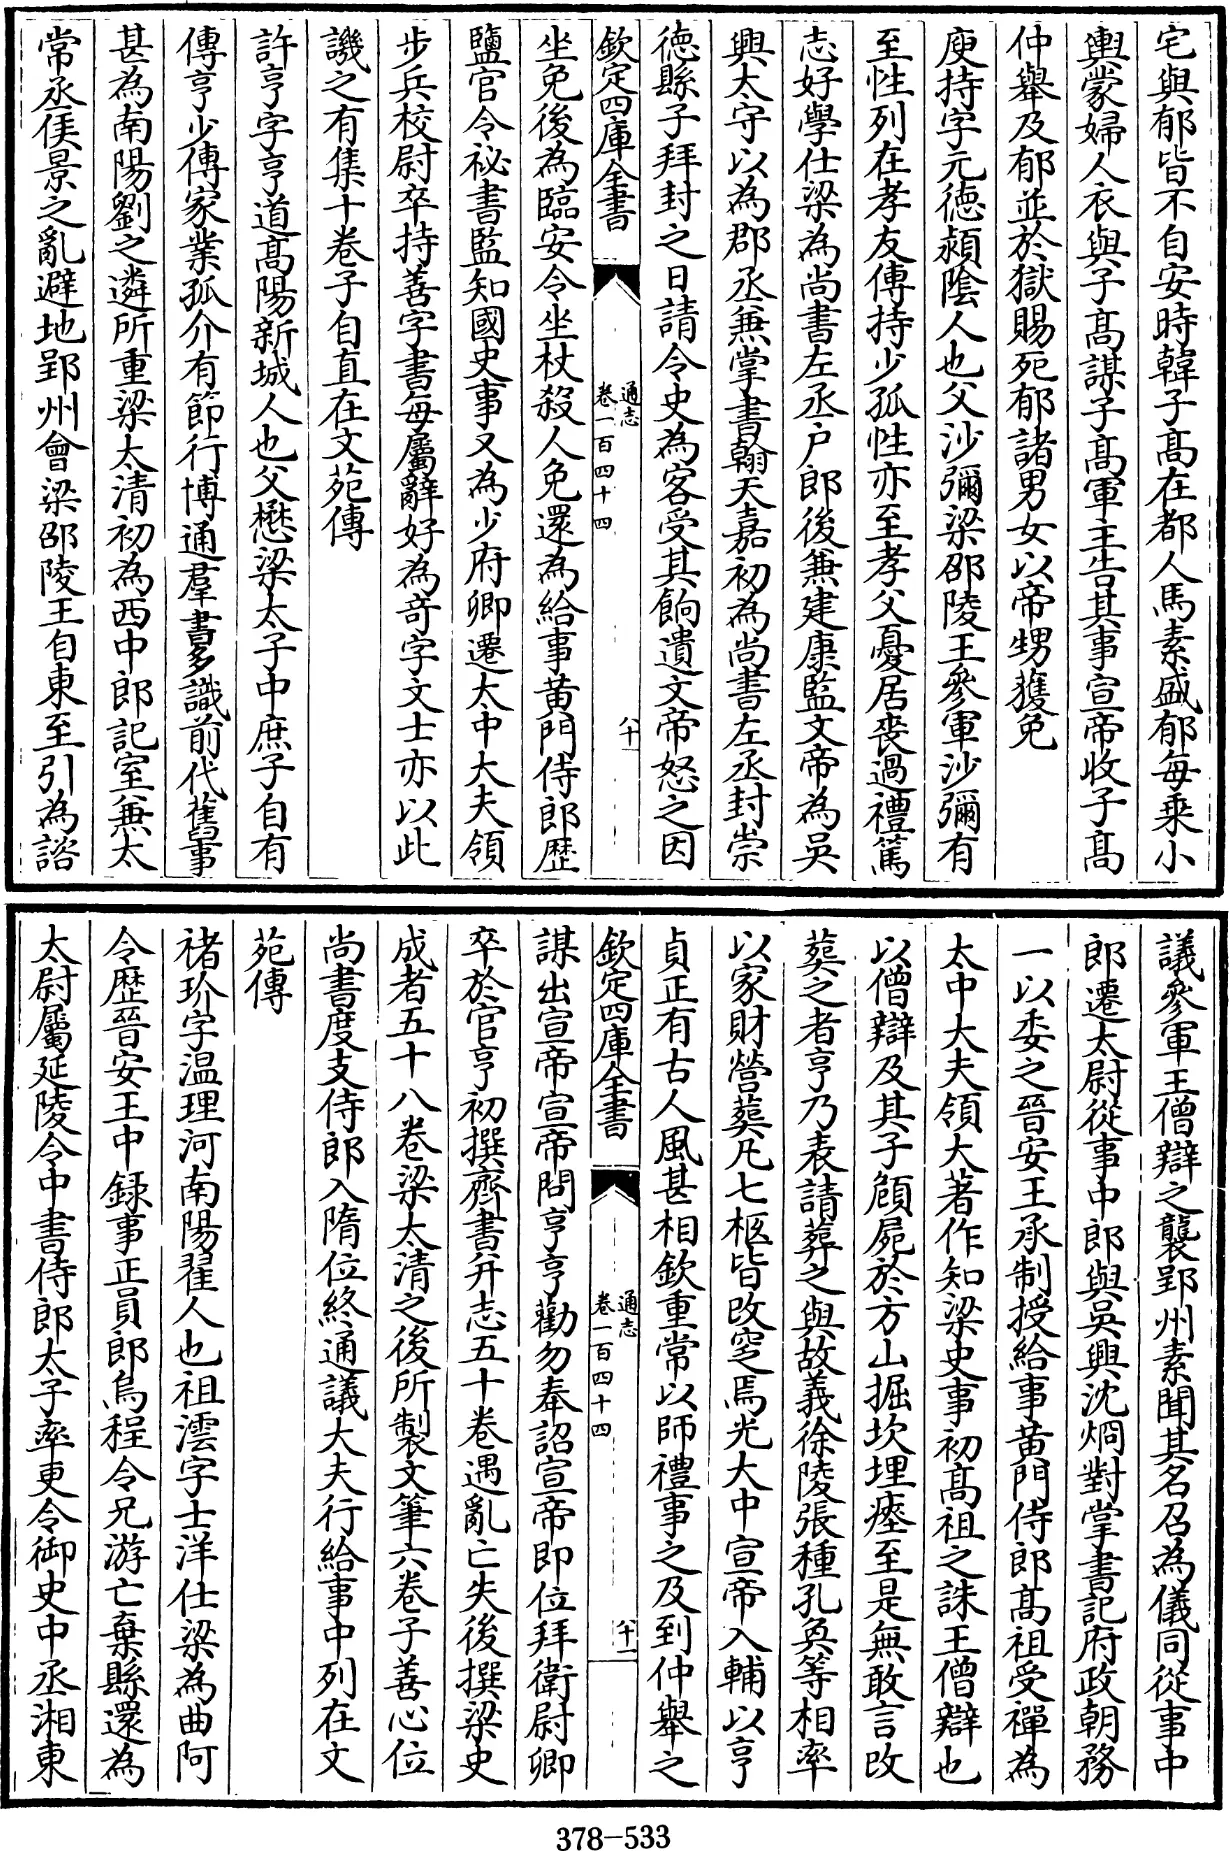 宅與郁皆不自安時韓子髙在都人馬素盛郁每乗小
輿蒙婦人衣與子髙謀子髙軍主告其事宣帝收子髙
仲舉及郁並於獄賜死郁諸男女以帝甥獲免
庾持字元徳潁隂人也父沙彌梁邵陵王參軍沙彌有
至性列在孝友傳持少孤性亦至孝父憂居喪過禮篤
志好學仕梁為尚書左丞户郎後兼建康監文帝為吳
興太守以為郡丞兼掌書翰天嘉初為尚書左丞封崇
徳縣子拜封之日請令史為客受其餉遺文帝怒之因
欽定四庫全書
通志
卷一百四十四
八十
坐免後為臨安令坐杖殺人免還為給事黄門侍郎歴
鹽官令祕書監知國史事又為少府卿遷太中大夫領
步兵校尉卒持善字書每屬辭好為奇字文士亦以此
譏之有集十卷子自直在文苑傳
許亨字亨道髙陽新城人也父懋梁太子中庶子自有
傳亨少傳家業孤介有節行博通羣書多識前代舊事
甚為南陽劉之遴所重梁太清初為西中郎記室兼太
常丞侯景之亂避地郢州會梁邵陵王自東至引為諮
議參軍王僧辯之襲郢州素聞其名召為儀同從事中
郎遷太尉從事中郎與吳興沈烱對掌書記府政朝務
一以委之晉安王承制授給事黄門侍郎髙祖受禪為
太中大夫領大著作知梁史事初髙祖之誅王僧辯也
以僧辯及其子頠屍於方山掘坎埋瘞至是無敢言改
葬之者亨乃表請葬之與故義徐陵張種孔奐等相率
以家財營葬凡七柩皆改窆焉光大中宣帝入輔以亨
貞正有古人風甚相欽重常以師禮事之及到仲舉之
欽定四庫全書
通志
卷一百四十四
八十一
謀出宣帝宣帝問亨亨勸勿奉詔宣帝即位拜衛尉卿
卒於官亨初撰齊書并志五十卷遇亂亡失後撰梁史
成者五十八卷梁太清之後所製文筆六卷子善心位
尚書度支侍郎入隋位終通議大夫行給事中列在文
苑傳
禇玠字温理河南陽翟人也祖澐字士洋仕梁為曲阿
令歴晉安王中録事正員郎烏程令兄游亡棄縣還為
太尉屬延陵令中書侍郎太子率更令御史中丞湘東
378-533